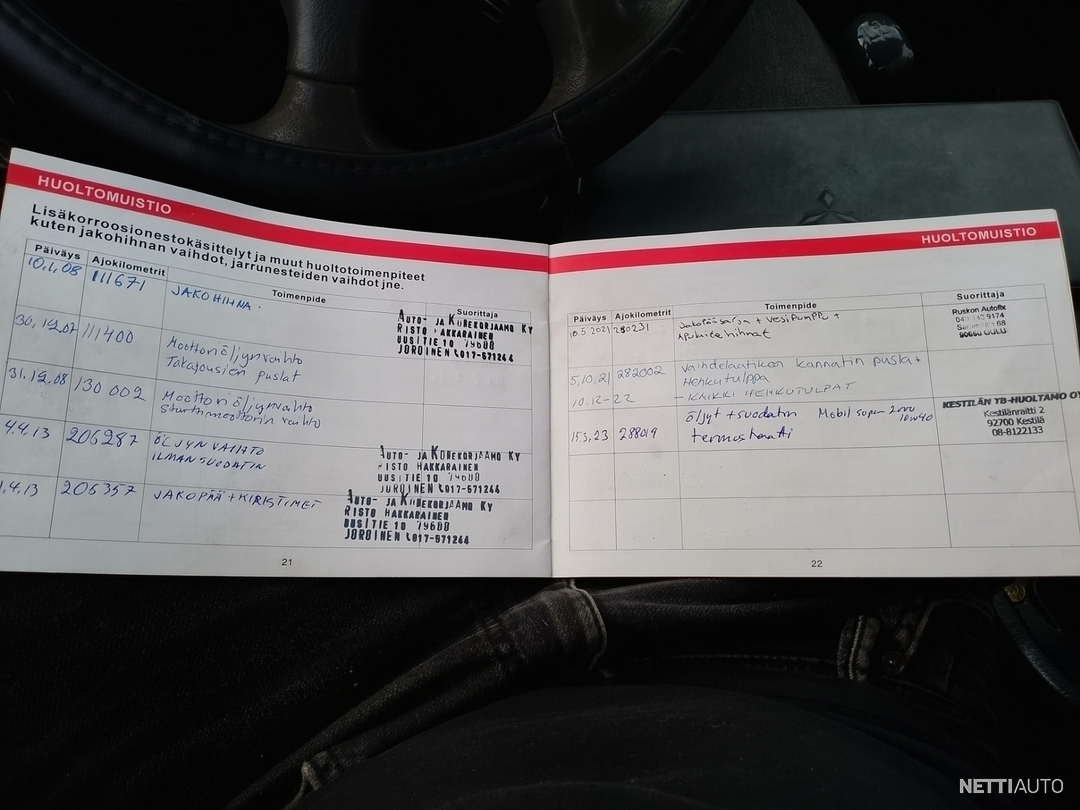 HUOLTOMUISTIO
Lisäkorroosionestokäsittelyt ja muut huoltotoimenpiteet
kuten jakohihnan vaihdot, jarrunesteiden vaihdot jne.
Päiväys Ajokilometrit Toimenpide Suorittaja
10.1.08 111671 JAKOHIHNA.
AUTO- JA KONEKORJAAMO KY
RISTO HAKKARAINEN
UUSITIE 10 79600
JOROINEN 017-571244
30.12.07 111400 Moottoriöljynvaihto
Takajousien puslat
31.12.08 130 002 Moottoriöljynvaihto
Starttimoottorin vaihto
4.4.13 206287 ÖLJYN VAIHTO
ILMANSUODATIN
AUTO- JA KONEKORJAAMO KY
RISTO HAKKARAINEN
UUSITIE 10 79600
JOROINEN 017-571244
.4.13 206357 JAKOPÄÄ + KIRISTIMET
AUTO- JA KONEKORJAAMO KY
RISTO HAKKARAINEN
UUSITIE 10 79600
JOROINEN 017-571244
21
HUOLTOMUISTIO
Päiväys Ajokilometrit Toimenpide Suorittaja
10.5.2021 280231 Jakopääsarja + vesipumppu +
Apulaitehihnat
Ruskon Autofix
9174
68
OULU
5.10.21 282002 vaihdelaatikon kannatin pusla +
Hehkutulppa
10.12-22 - KAIKKI HEHKUTULPAT
15.3.23 288019 öljyt + suodatin Mobil super 2000 10w40
termostaatti
KESTILÄN YB-HUOLTAMO OY
Kestilänraitti 2
92700 Kestilä
08-8122133
22
NETTIAUTO